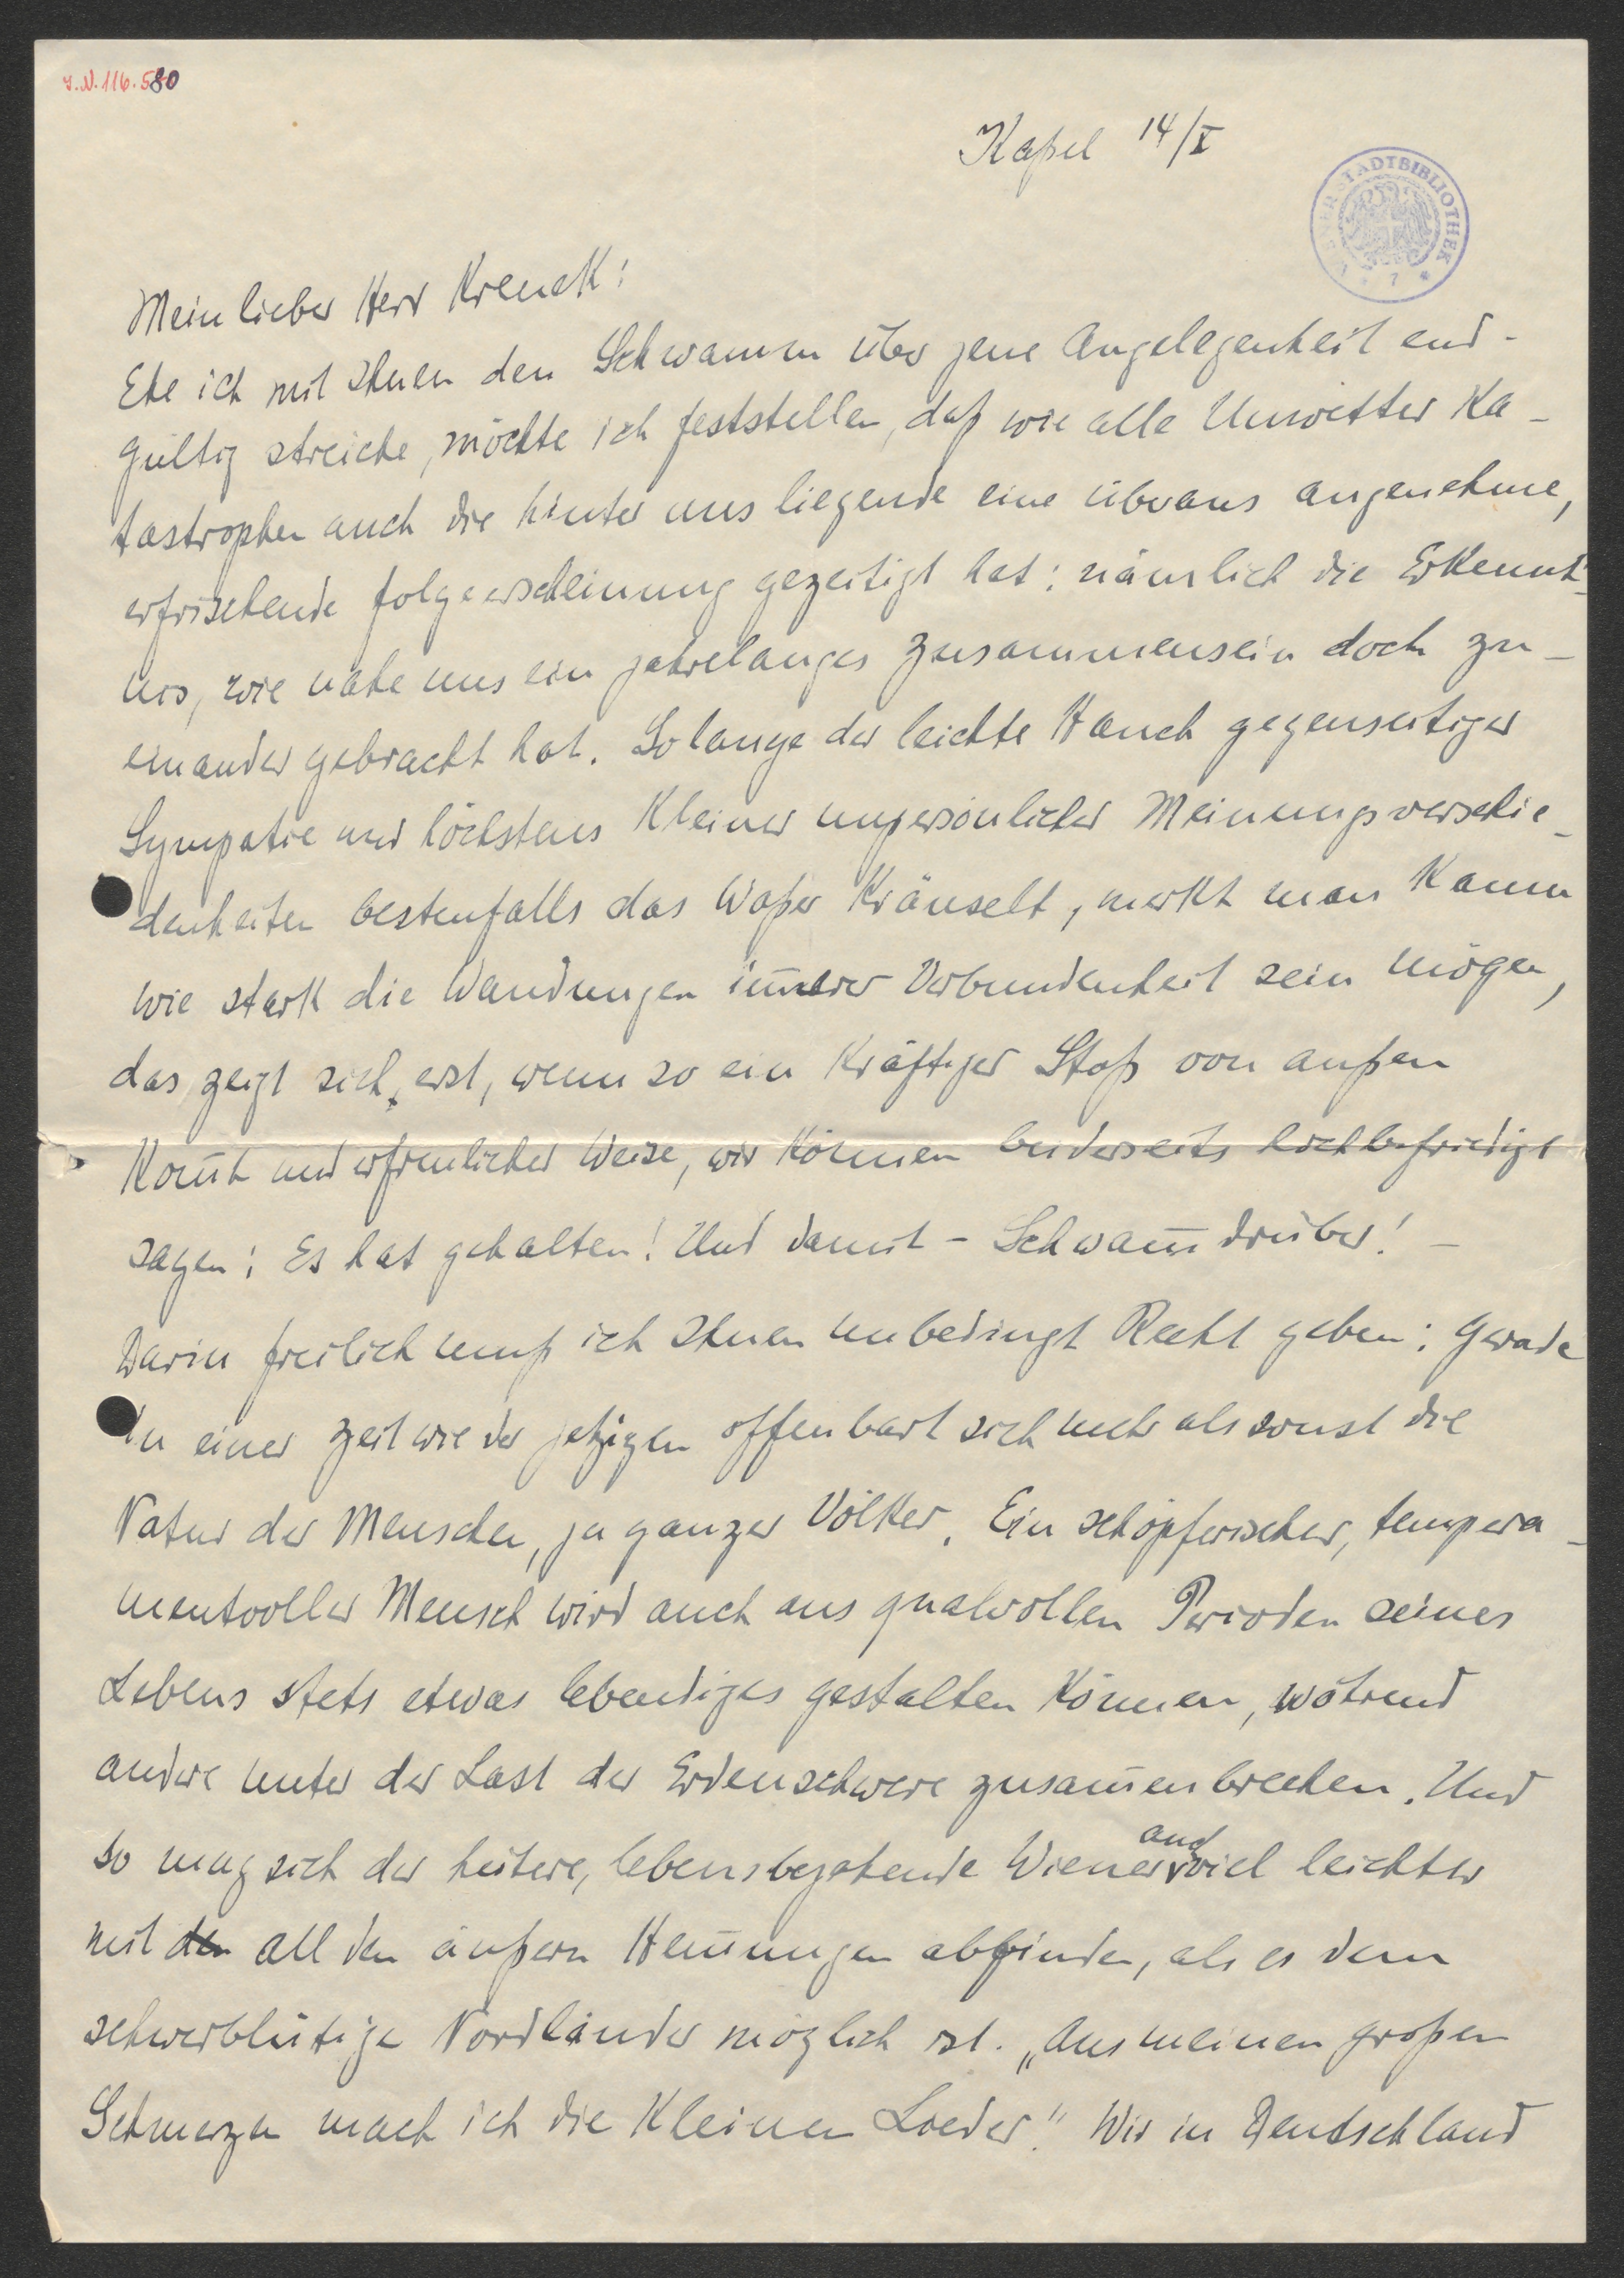 I.N. 116.580
Kaßel 14/I
STADTBIBLIOTHEK
Mein lieber Herr Krenek!
Ehe ich mit Ihnen den Schwamm über jene Angelegenheit end-
gültig streiche, möchte ich feststellen, daß wie alle Unwetter Ka-
tastrophen auch die hinter uns liegende eine überaus angenehme,
erfrischende Folgeerscheinung gezeitigt hat: nämlich die Erkennt-
nis, wie nahe uns ein jahrelanges Zusammensein doch zu-
einander gebracht hat. Solange der leichte Hauch gegenseitiger
Sympatie und höchstens kleiner unpersönlicher Meinungsverschie-
denheiten bestenfalls das Waßer kräuselt, merkt man kaum
wie stark die Wandungen iñerer Verbundenheit sein mögen,
das zeigt sich erst, wenn so ein kräftiger Stoß von außen
kom̄t und erfreulicher Weise, wir können beiderseits hochbefriedigt
sagen: Es hat gehalten! Und damit - Schwam̄ drüber! -
Darin freilich muß ich Ihnen unbedingt Recht geben: Gerade
in einer Zeit wie der jetzigen offenbart sich mehr als sonst die
Natur der Menschen, ja ganzer Völker. Ein schöpferischer, tempera-
mentvoller Mensch wird auch aus qualvollen Perioden seines
Lebens stets etwas lebendiges gestalten können, während
andere unter der Last der Erdenschwere zusam̄enbrechen. Und
so mag sich der heitere, lebensbejahende Wiener auch viel leichter
mit den all den äußern Hem̄ungen abfinden, als es dem
schwerblütige Nordländer möglich ist. „Aus meinen großen
Schmerzen mach ich die kleinen Lieder." Wir in Deutschland